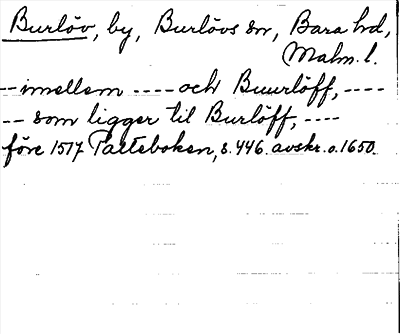 Burlöv, by, Burlövs sn, Bara hd,
Malm. l.
-- imellem ---- och Buurlöff, ----
-- som ligger til Burlöff, ----
före 1517 Palteboken, s. 446. avskr. o. 1650.